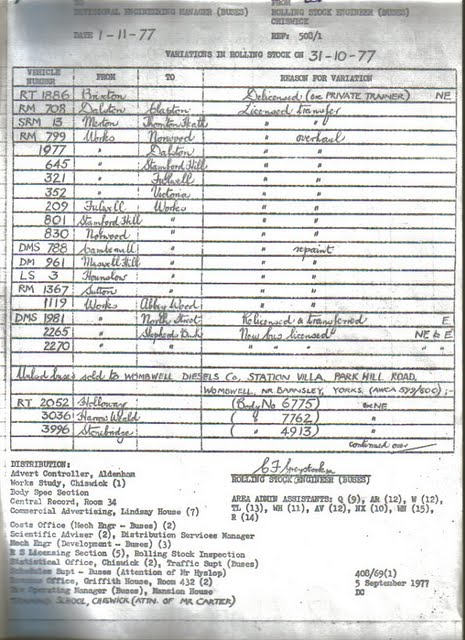 TO
DIVISIONAL ENGINEERING MANAGER (BUSES)
FROM
ROLLING STOCK ENGINEER (BUSES)
CHISWICK
DATE 1-11-77
REF: 508/1
VARIATIONS IN ROLLING STOCK ON 31-10-77
VEHICLE NUMBER FROM TO REASON FOR VARIATION
RT 1886 Brixton Delicensed (ex PRIVATE TRAINER) NE
RM 708 Dalston Clapton Licensed transfer
SRM 13 Merton Thornton Heath " "
RM 799 Works Norwood " overhaul
1977 " Dalston " "
645 " Stamford Hill " "
321 " Fulwell " "
352 " Victoria " "
209 Fulwell Works " "
801 Stamford Hill " " "
830 Norwood " " "
DMS 788 Camberwell " " repaint
DM 961 Muswell Hill " " "
LS 3 Hounslow " " "
RM 1367 Sutton " " "
1119 Works Abbey Wood " "
DMS 1981 " North Street Relicensed & transferred E
2265 " Shepherds Bush New bus licensed NE to E
2270 " " " " " " "
Unlicd buses sold to WOMBWELL DIESELS Co, STATION VILLA, PARK HILL ROAD,
WOMBWELL, NR. BARNSLEY, YORKS.
RT 2052 Holloway (Body No 6775) ex NE
3036 Harrow Weald ( " 7762) "
3996 Stonebridge ( " 4913) "
continued over
DISTRIBUTION:
Advert Controller, Aldenham
Works Study, Chiswick (1)
Body Spec Section
Central Record, Room 34
Commercial Advertising, Lindsay House (7)
Costs Office (Mech Engr - Buses) (2)
Scientific Adviser (2), Distribution Services Manager
Mech Engr (Development - Buses) (3)
R S Licensing Section (5), Rolling Stock Inspection
Statistical Office, Chiswick (2), Traffic Supt (Buses)
Schedules Supt - Buses (Attention of Mr Hyslop)
Office, Griffith House, Room 432 (2)
Operating Manager (Buses), Mansion House
TRAINING SCHOOL, CHISWICK (ATTN. OF MR CARTER)
ROLLING STOCK ENGINEER (BUSES)
AREA ADMIN ASSISTANTS: Q (9), AR (12), W (12),
TL (13), WH (11), AV (12), HX (10), WN (15),
R (14)
408/69(1)
5 September 1977
DG